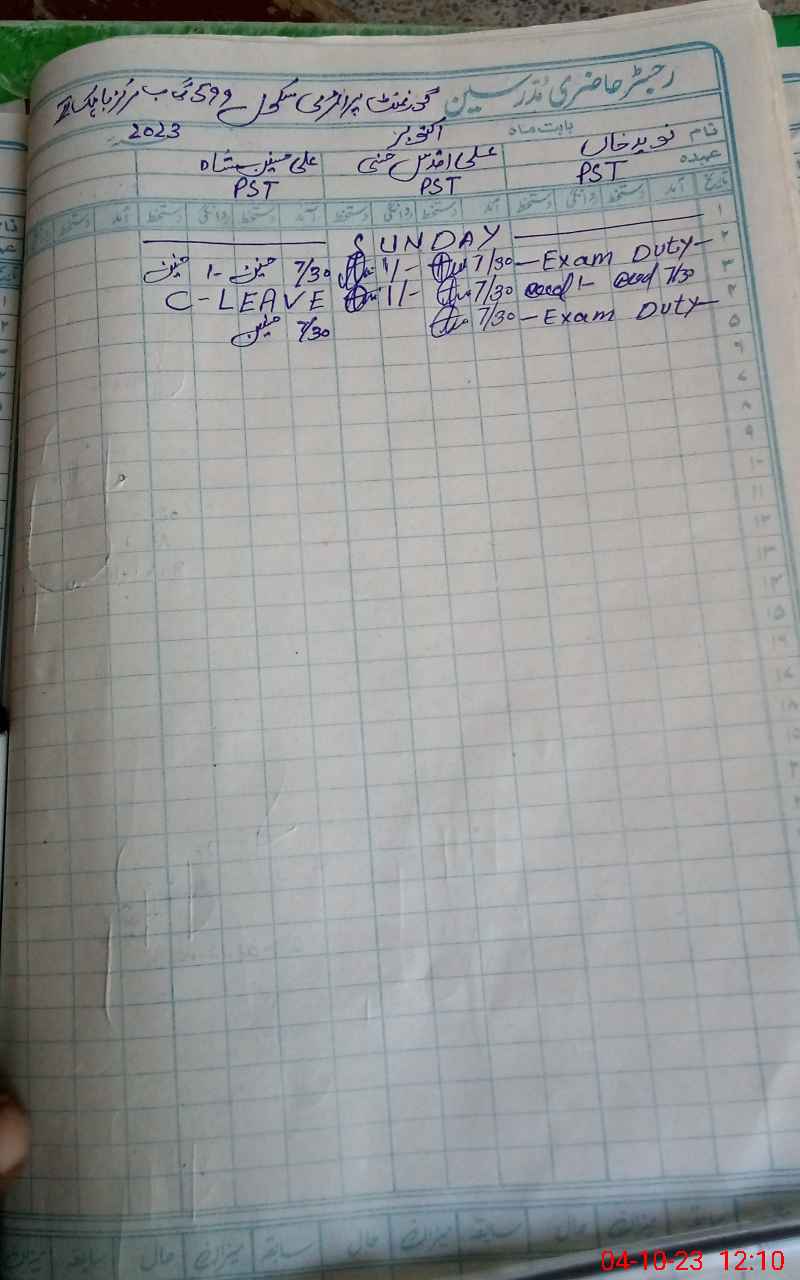 رجسٹر حاضری مدرسین گورنمنٹ پرائمری سکول 599 گ ب مرکز
بابت ماہ اکتوبر 2023
نام نوید خاں علی اقدس علی حسنین شاہ
عہدہ PST PST PST
تاریخ آمد دستخط روانگی دستخط آمد دستخط روانگی دستخط آمد دستخط روانگی دستخط آمد دستخط
۱ SUNDAY
۲ — Exam Duty — 7/30 1/- 7/30 حسنین 1- حسنین
۳ 7/30 1- 7/30 1/- C-LEAVE
۴ — Exam Duty — 7/30 7/30 حسنین
۵
۶
۷
۸
۹
۱۰
۱۱
۱۲
۱۳
۱۴
۱۵
۱۶
۱۷
۱۸
سابقہ حال میزان سابقہ حال میزان سابقہ حال میزان
04-10-23 12:10